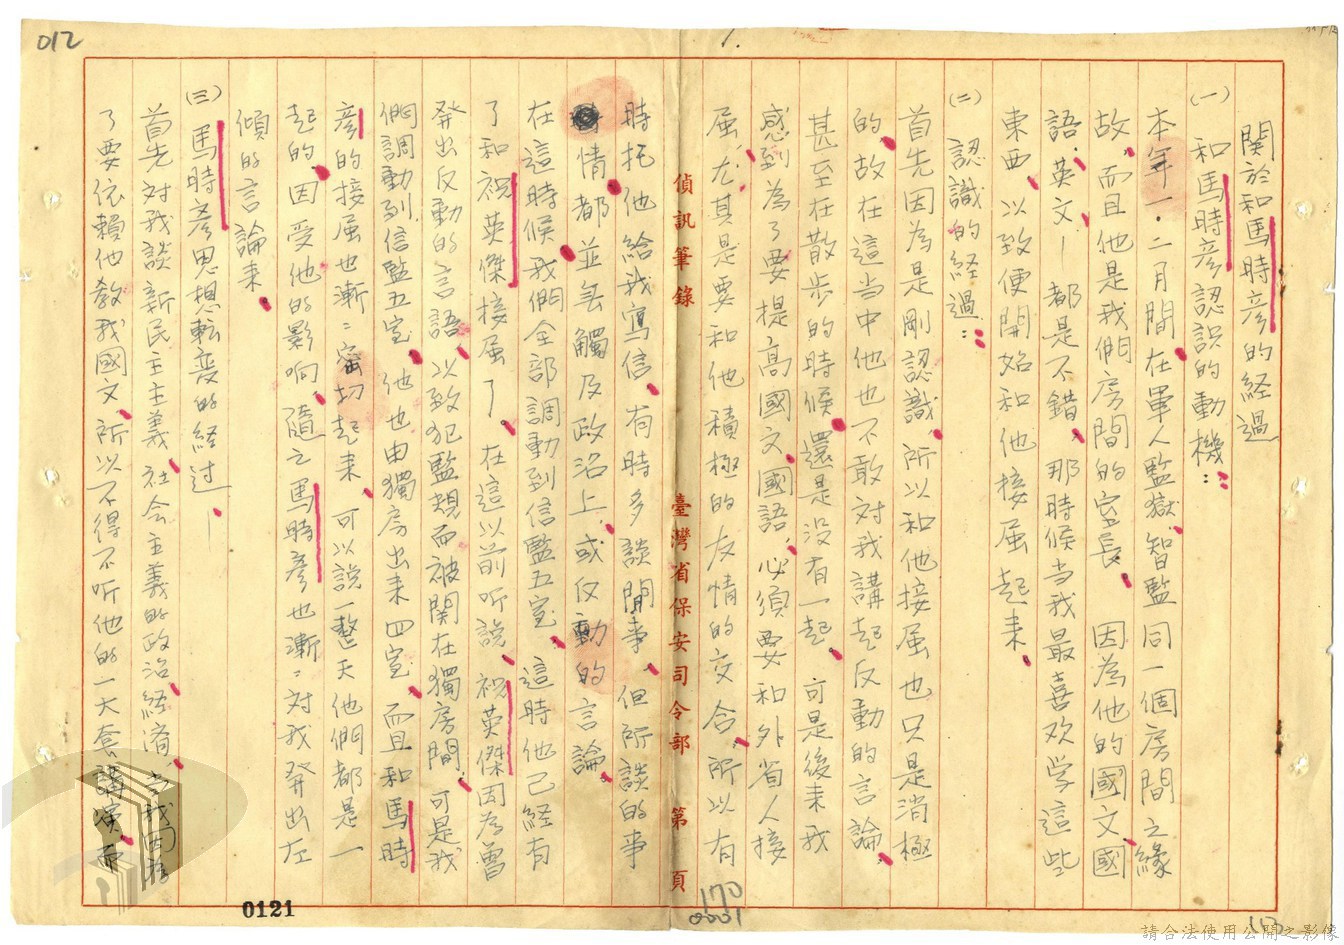 012
1.
關於和馬時彥的経過
(一) 和馬時彥認识的動機：
本年一．二月間，在軍人監獄，智監同一個房間之緣
故，而且他是我們房間的室長，因為他的國文，國
語，英文，都是不錯，那時候当我最喜欢学這些
東西，以致便開始和他接届起耒，
(二) 認識的経過：
首先因為是剛認識，所以和他接届也只是消極
的，故在這当中他也不敢対我講起反動的言論，
甚至在散步的時候，還是没有一起，可是後耒我
感到為了要提高國文，國語，必須要和外省人接
届，尤其是要和他積極的友情的交合，所以有
偵訊筆錄
臺灣省保安司令部
第
頁
時托他給我寫信，有時多談閒事，但所談的事
情都並無觸及政治上，或反動的言論，
在這時候，我們全部調動到信監五室，這時他已経有
了和祝英傑接届了，在這以前听説，祝英傑因為曾
発出反動的言語，以致犯監規而被関在獨房間，可是我
們調動到信監五室，他也由獨房出耒四室，而且和馬時
彥的接届也漸々密切起耒，可以説一整天他們都是一
起的，因受他的影响，随之馬時彥也漸々対我発出左
傾的言論耒，
(三) 馬時彥思想転变的経过—
首先対我談新民主主義，社会主義的政治経済，
了要依賴他教我國文，所以不得不听他的一大套講演，而
0121
170
0001
112
請合法使用公開之影像